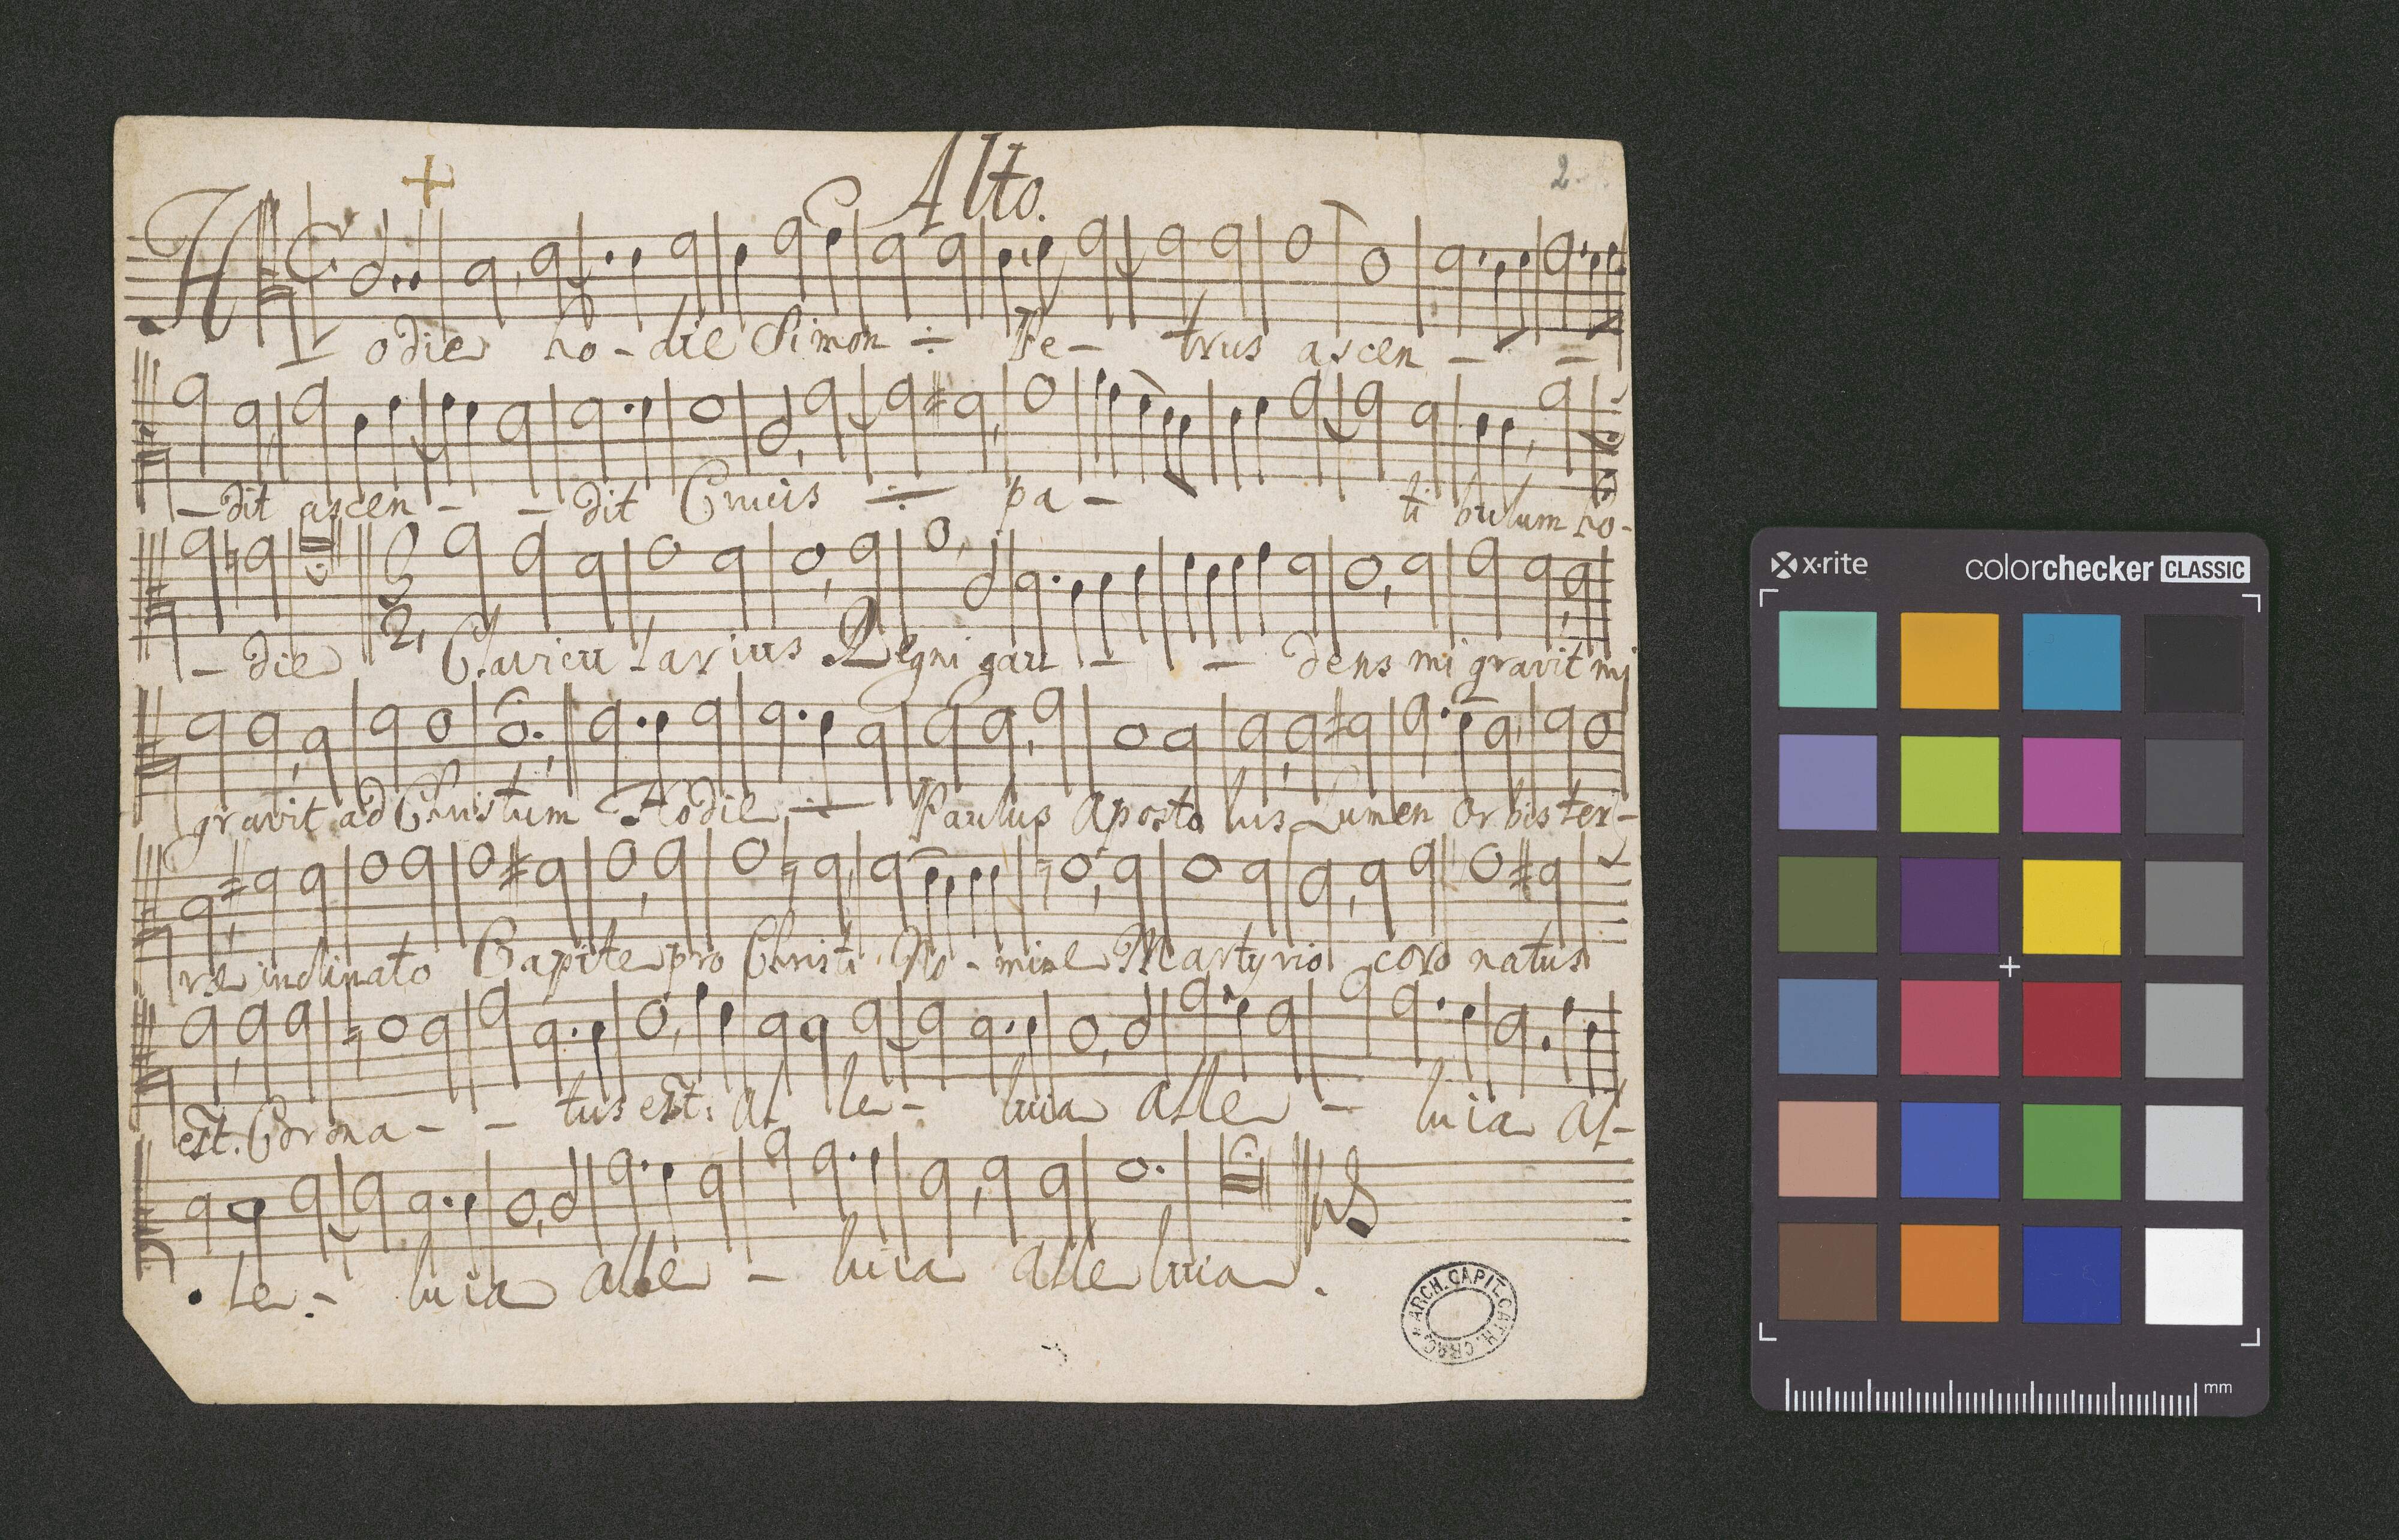 Alto.
2
Hodie ho - die Simon ÷ Pe - trus ascen - -
- dit ascen - - dit Crucis ÷ pa - ti bulum ho-
- die Clavicu larius Regni gau - - dens mi gravit mi
gravit ad Christum Hodie ÷ Paulus Aposto lus Lumen Orbis ter-
ræ inclinato Capite pro Christi No - mine Martyrio coro natus
est. Corona - - tus est: Al le - luia alle - luia Al-
le - luia alle - luia alleluia.
ARCH. CAPIT. CATH. CRAC
x-rite
colorchecker CLASSIC
mm